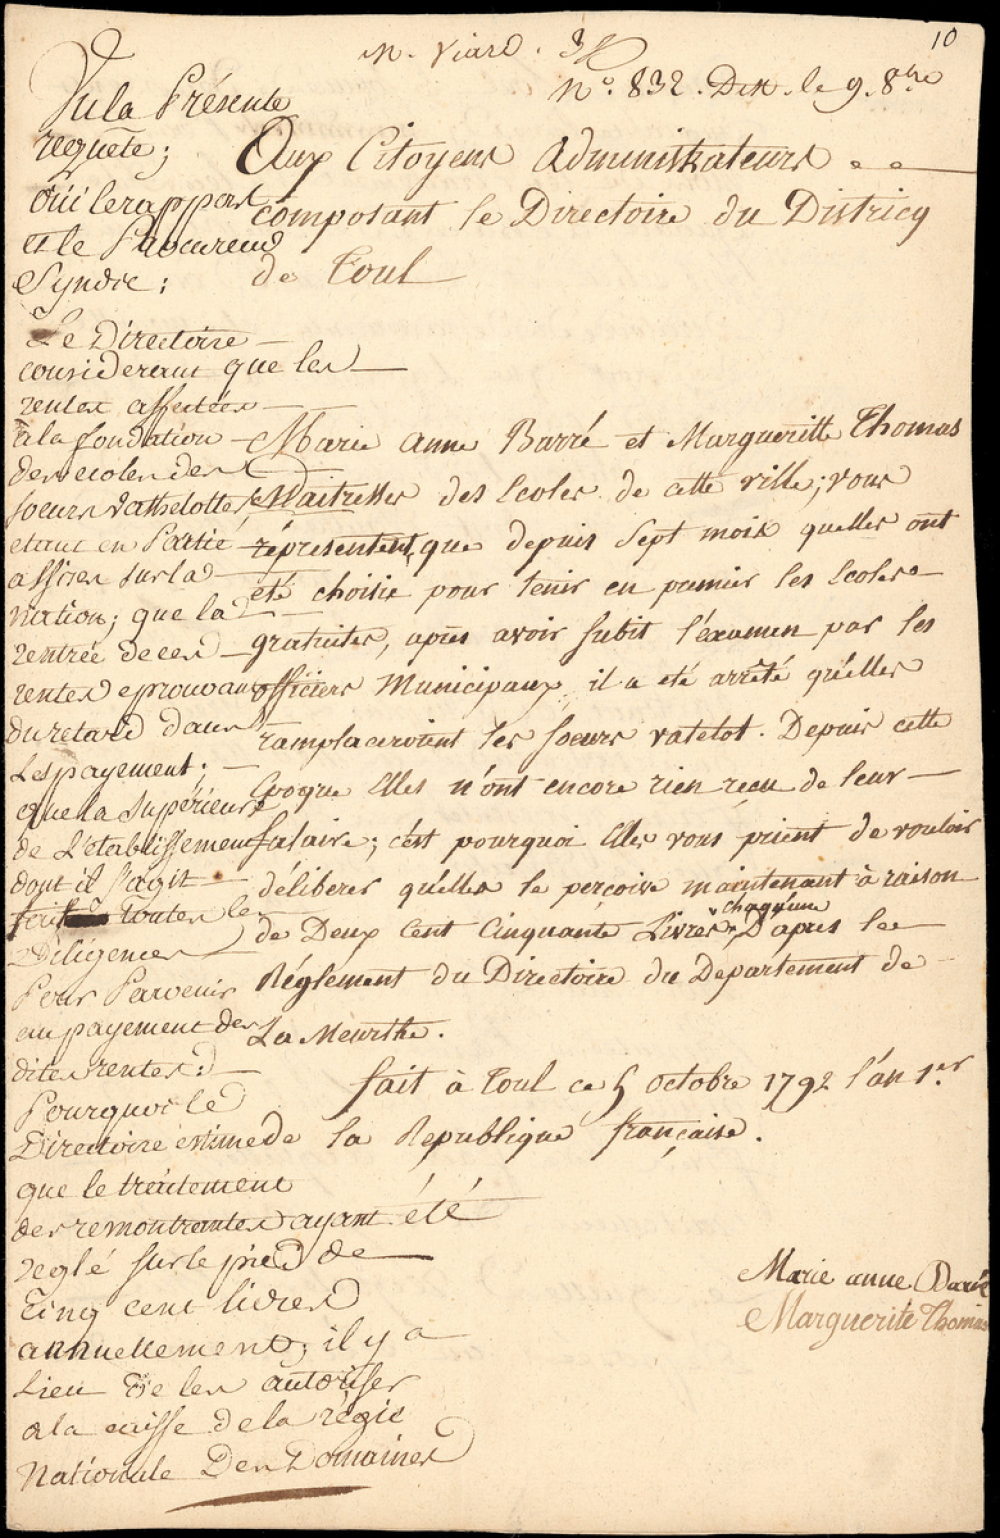 10
M. Viard. 3
N.o 832. Dist. le 9. 8bre
Aux Citoyens Administrateurs
composant le Directoire du Districq
de Toul
Marie anne Barré et Margueritte Thomas
Maitresses des Ecoles de cette ville; vous
répresentent, que depuis Sept mois quelles ont
eté choisie pour tenir en pumier les Ecoles
gratuites, apres avoir subit l'éxamen par les
officiers Municipaux, il a eté arrêté qu'elles
ramplaceroient les soeurs vatelot. Depuis cette
Epoque Elles n'ont encore rien reçu de leur
salaire; c'est pourquoi Elles vous prient de vouloir
déliberer qu'elles le perçoive maintenant à raison
de Deux Cent Cinquante Livres chaqu'une D'apres le
Réglement du Directoire du Departement de
La Meurthe.
fait à Toul ce 5 octobre 1792 l'an 1.er
de la Republique française.
Marie anne Baré
Marguerite Thomas
Vu la Présente
requête;
oui le rapport
et le Procureur
Syndic;
Le Directoire
considerant que les
rentes affectées
a la fondation
des ecoles des
soeurs vathelottes
etant en Partie
assises sur la
nation; que la
rentrée de ces
rentes eprouvant
du retard dans
Les payement;
que la Supérieure
de L'établissement
dont il s'agit
toutes le
Diligences
Pour Parvenir
au payement des
dites rentes:
Pourquoi le
Directoire estime
que le traitement
des remontrantes ayant été
reglé sur le pied de
Cinq cent livres
annuellement; il y a
Lieu de les autoriser
a la caisse de la régie
Nationale Des Domaines